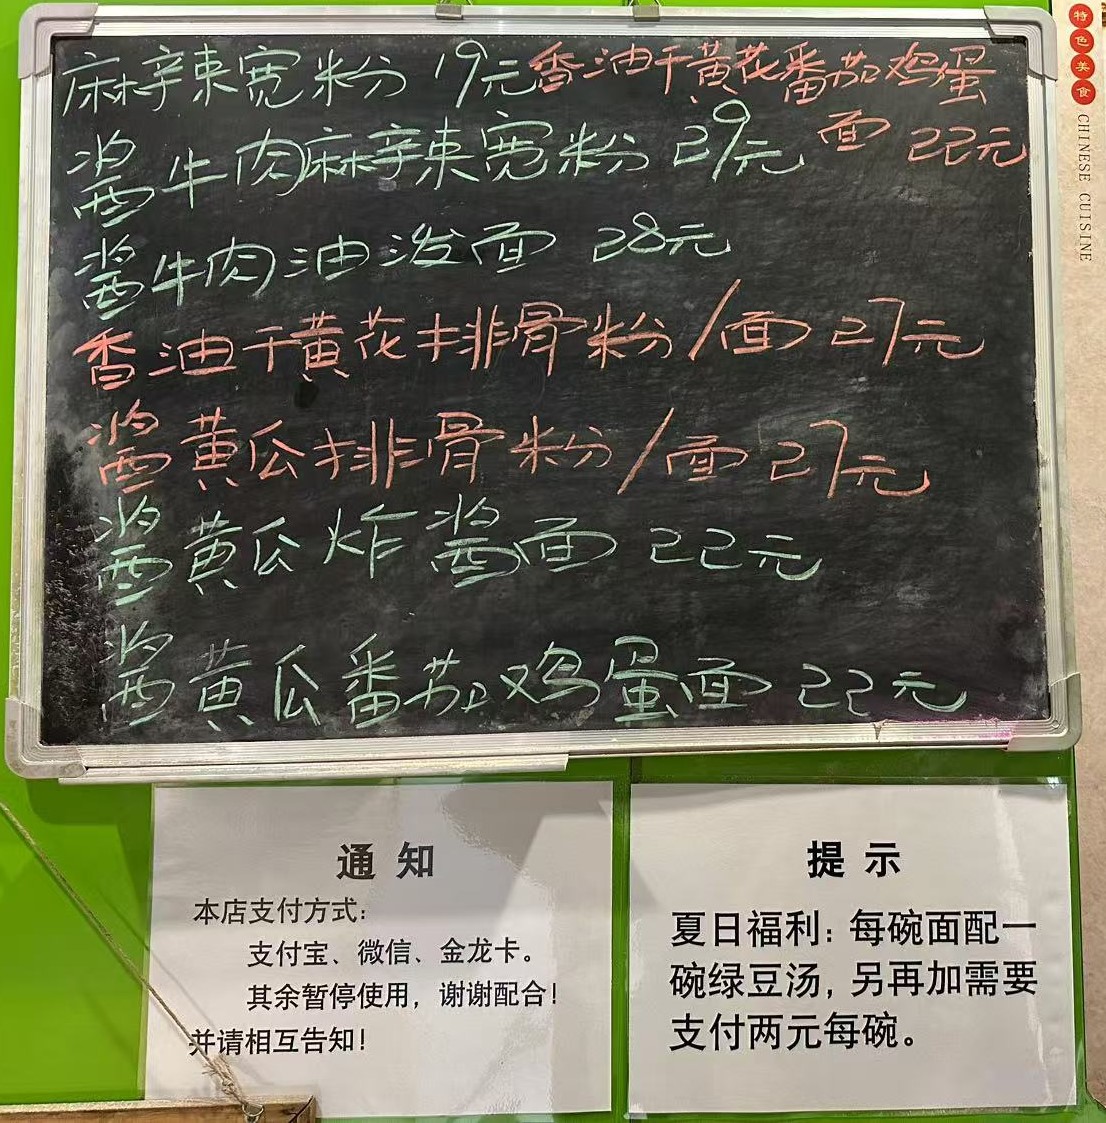 麻辣宽粉 19元
香油干黄花番茄鸡蛋
面 22元
酱牛肉麻辣宽粉 29元
酱牛肉油泼面 28元
香油干黄花排骨粉/面 27元
酱黄瓜排骨粉/面 27元
酱黄瓜炸酱面 22元
酱黄瓜番茄鸡蛋面 22元
特色美食
CHINESE CUISINE
通知
本店支付方式：
支付宝、微信、金龙卡。
其余暂停使用，谢谢配合！
并请相互告知！
提示
夏日福利：每碗面配一
碗绿豆汤，另再加需要
支付两元每碗。